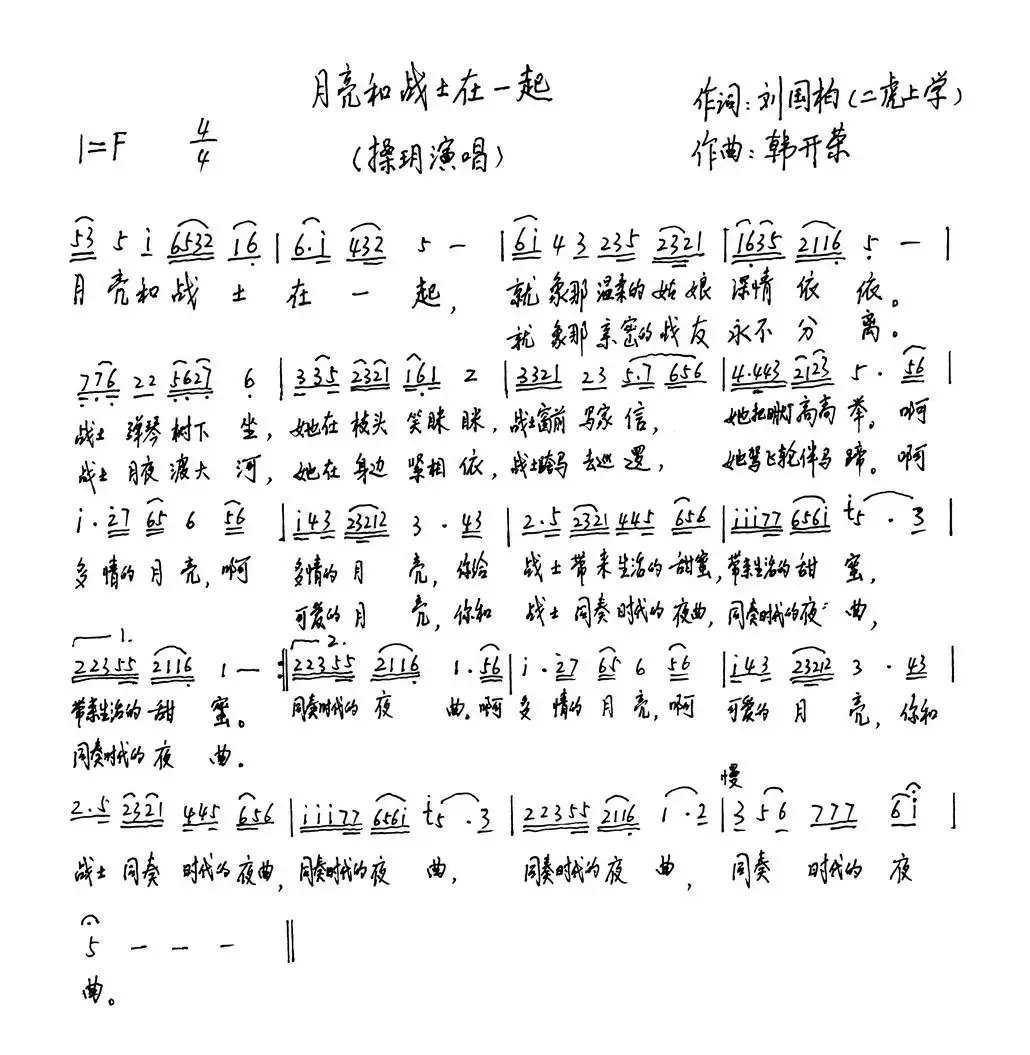 月亮和战士在一起
作词:刘国柏(二虎上学)
1=F 4/4
(操玥演唱)
作曲:韩开荣
53 5 i 6532 16 | 6·i 432 5 — | 6i 43 235 2321 | 1635 2116 5 — |
月亮和战士在一起, 就象那温柔的姑娘深情依依。
就象那亲密的战友永不分离。
776 22 5627 6 | 335 2321 161 2 | 3321 23 5·7 656 | 4·443 2123 5· 56 |
战士弹琴树下坐, 她在枝头笑眯眯, 战士窗前写家信, 她把明灯高高举。啊
战士月夜渡大河, 她在身边紧相依, 战士跨马去巡逻, 她驾飞轮伴马蹄。啊
i·i7 65 6 56 | i43 23212 3·43 | 2·5 2321 445 656 | iii77 656i i5·3 |
多情的月亮, 啊 多情的月亮, 你给战士带来生活的甜蜜, 带来生活的甜蜜,
可爱的月亮, 你和战士同奏时代的夜曲, 同奏时代的夜曲,
1. 2.
22355 2116 1 — :‖ 22355 2116 1·56 | i·i7 65 6 56 | i43 23212 3·43 |
带来生活的甜蜜。 同奏时代的夜曲。啊 多情的月亮, 啊 可爱的月亮, 你和
同奏时代的夜曲.
慢
2·5 2321 445 656 | iii77 656i i5·3 | 22355 2116 1·2 | 3 56 777 6i |
战士同奏时代的夜曲, 同奏时代的夜曲, 同奏时代的夜曲, 同奏时代的夜
5 — — — ‖
曲。